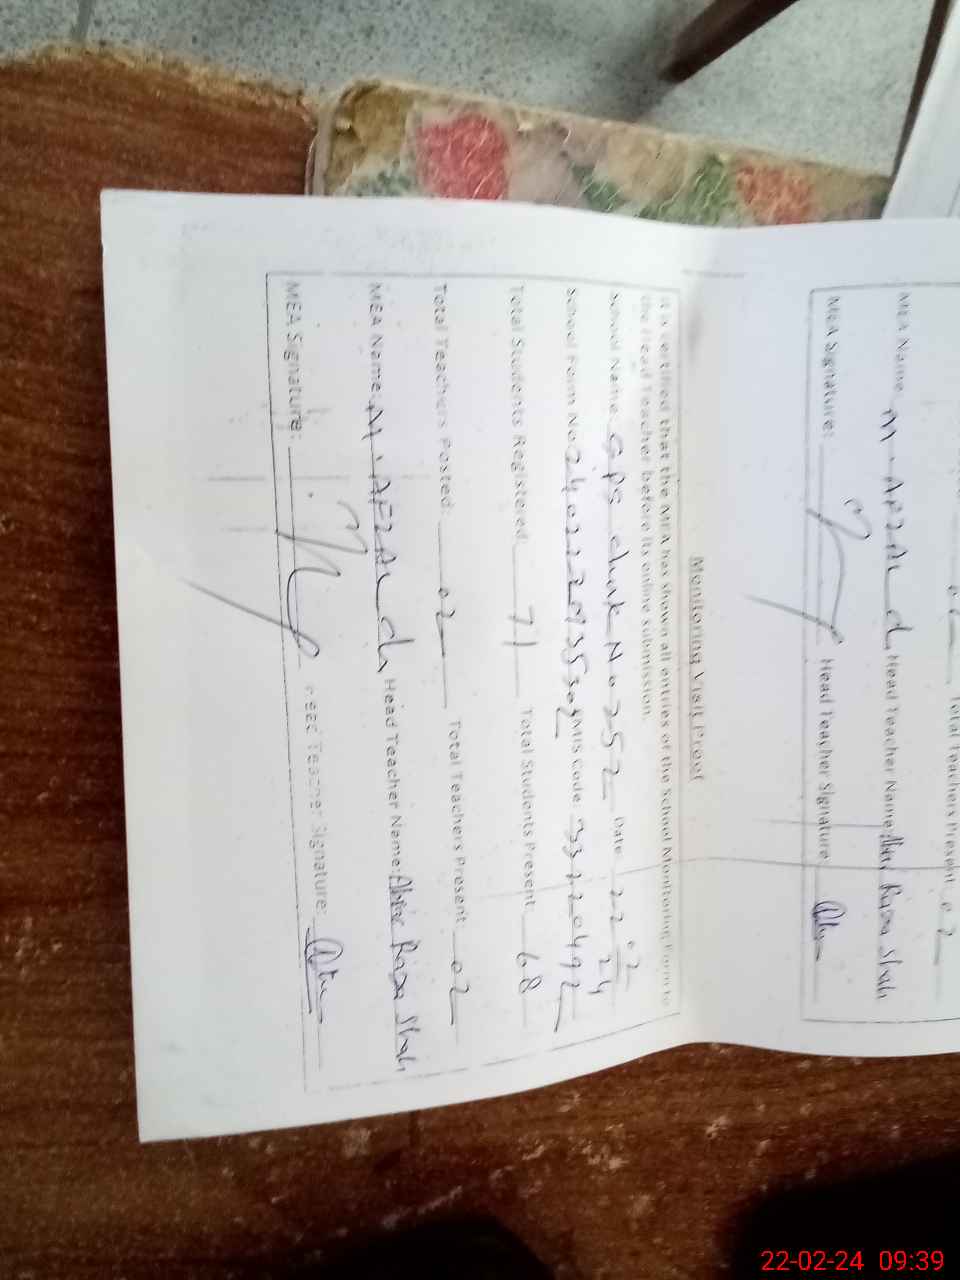 Total Teachers Present 02
MEA Name: M. AFZAL Head Teacher Name: Raza Shah
MEA Signature: Head Teacher Signature
Monitoring Visit Proof
It is certified that the MEA has shown all entries of the School Monitoring Form to
the Head Teacher before its online submission.
School Name GPS chak No 252 Date 22 02 24
School Form No. EMIS Code
Total Students Registered: 71 Total Students Present 68
Total Teachers Posted: 02 Total Teachers Present: 02
MEA Name: M. AFZAL Head Teacher Name: Raza Shah
MEA Signature: Head Teacher Signature:
22-02-24 09:39